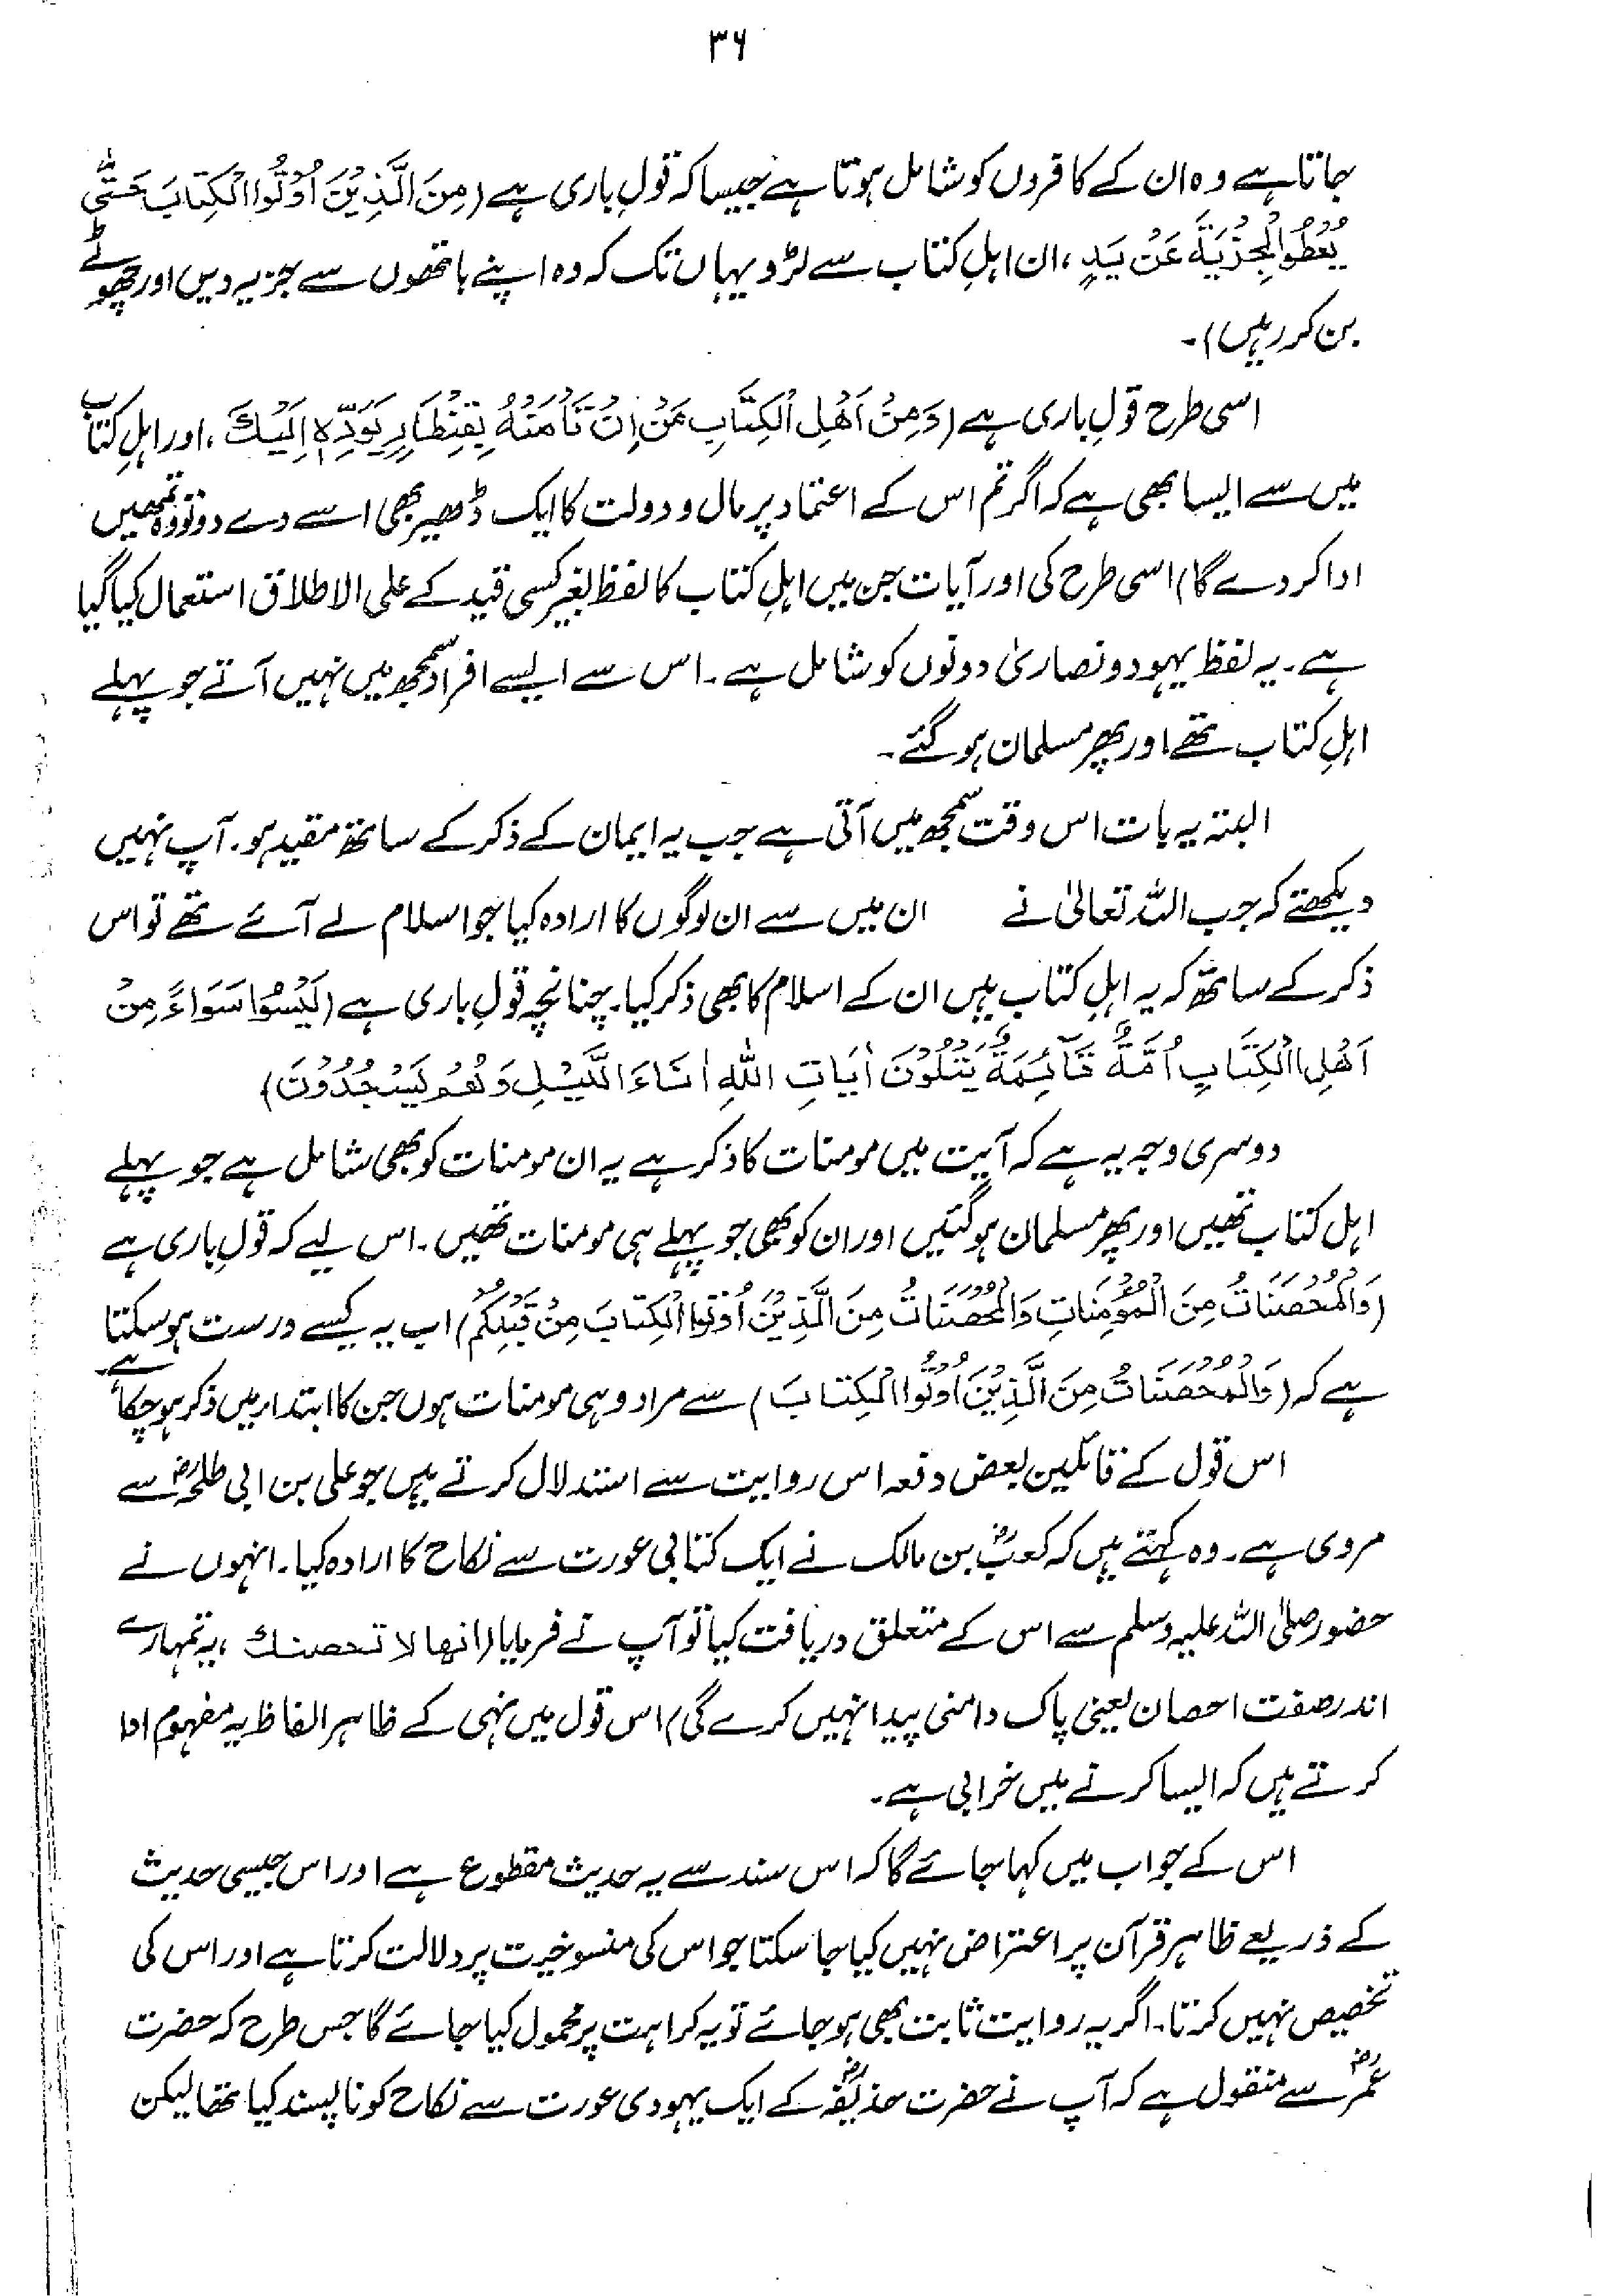 ۳۶
جاتا ہے وہ ان کے کافروں کو شامل ہوتا ہے جیسا کہ قولِ باری ہے (مِنَ الَّذِیْنَ اُوْتُوا الْکِتَابَ حَتّٰی
یُعْطُوا الْجِزْیَۃَ عَنْ یَدٍ، ان اہلِ کتاب سے لڑو یہاں تک کہ وہ اپنے ہاتھوں سے جزیہ دیں اور چھوٹے
بن کر رہیں)۔
اسی طرح قولِ باری ہے (وَمِنْ اَھْلِ الْکِتَابِ مَنْ اِنْ تَاْمَنْہُ بِقِنْطَارٍ یُؤَدِّہٖ اِلَیْکَ، اور اہلِ کتاب
میں سے ایسا بھی ہے کہ اگر تم اس کے اعتماد پر مال و دولت کا ایک ڈھیر بھی اسے دے دو تو وہ تمھیں
ادا کر دے گا) اسی طرح کی اور آیات جن میں اہلِ کتاب کا لفظ بغیر کسی قید کے علی الاطلاق استعمال کیا گیا
ہے۔ یہ لفظ یہود و نصاریٰ دونوں کو شامل ہے۔ اس سے ایسے افراد سمجھ میں نہیں آتے جو پہلے
اہلِ کتاب تھے اور پھر مسلمان ہو گئے۔
البتہ یہ بات اس وقت سمجھ میں آتی ہے جب یہ ایمان کے ذکر کے ساتھ مقید ہو۔ آپ نہیں
دیکھتے کہ جب اللہ تعالیٰ نے ان میں سے ان لوگوں کا ارادہ کیا جو اسلام لے آئے تھے تو اس
ذکر کے ساتھ کہ یہ اہلِ کتاب ہیں ان کے اسلام کا بھی ذکر کیا۔ چنانچہ قولِ باری ہے (لَیْسُوْا سَوَاءً مِنْ
اَھْلِ الْکِتَابِ اُمَّۃٌ قَآئِمَۃٌ یَتْلُوْنَ اٰیَاتِ اللّٰہِ اٰنَاءَ اللَّیْلِ وَھُمْ یَسْجُدُوْنَ)
دوسری وجہ یہ ہے کہ آیت میں مومنات کا ذکر ہے یہ ان مومنات کو بھی شامل ہے جو پہلے
اہل کتاب تھیں اور پھر مسلمان ہو گئیں اور ان کو بھی جو پہلے ہی مومنات تھیں۔ اس لیے کہ قولِ باری ہے
(وَالْمُحْصَنَاتُ مِنَ الْمُؤْمِنَاتِ وَالْمُحْصَنَاتُ مِنَ الَّذِیْنَ اُوْتُوا الْکِتَابَ مِنْ قَبْلِکُمْ) اب یہ کیسے درست ہو سکتا
ہے کہ (وَالْمُحْصَنَاتُ مِنَ الَّذِیْنَ اُوْتُوا الْکِتَابَ) سے مراد وہی مومنات ہوں جن کا ابتداء میں ذکر ہو چکا ہے
اس قول کے قائلین بعض دفعہ اس روایت سے استدلال کرتے ہیں جو علی بن ابی طلحہؓ سے
مروی ہے۔ وہ کہتے ہیں کہ کعبؓ بن مالک نے ایک کتابی عورت سے نکاح کا ارادہ کیا۔ انہوں نے
حضور صلی اللہ علیہ وسلم سے اس کے متعلق دریافت کیا تو آپ نے فرمایا (انھا لا تحصنك، یہ تمہارے
اندر صفت احصان یعنی پاک دامنی پیدا نہیں کرے گی) اس قول میں نہی کے ظاہر الفاظ یہ مفہوم ادا
کرتے ہیں کہ ایسا کرنے میں خرابی ہے۔
اس کے جواب میں کہا جائے گا کہ اس سند سے یہ حدیث مقطوع ہے اور اس جیسی حدیث
کے ذریعے ظاہر قرآن پر اعتراض نہیں کیا جا سکتا جو اس کی منسوخیت پر دلالت کرتا ہے اور اس کی
تخصیص نہیں کرتا۔ اگر یہ روایت ثابت بھی ہو جائے تو یہ کراہت پر محمول کیا جائے گا جس طرح کہ حضرت
عمرؓ سے منقول ہے کہ آپ نے حضرت حذیفہؓ کے ایک یہودی عورت سے نکاح کو ناپسند کیا تھا لیکن